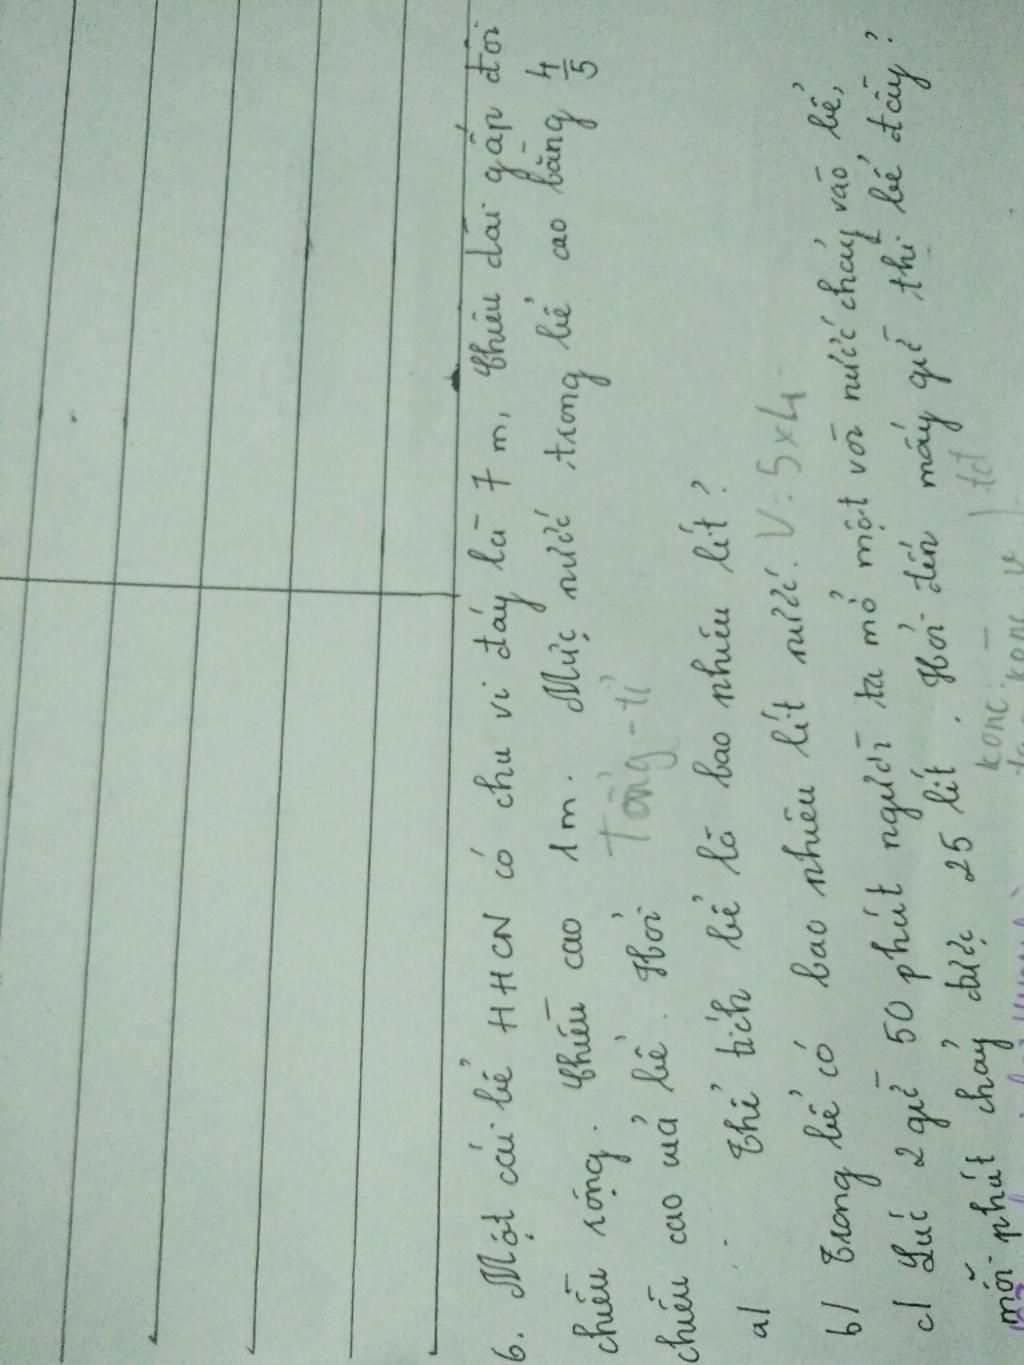 6. Một cái bể HHCN có chu vi đáy là 7 m, chiều dài gấp đôi
chiều rộng. Chiều cao 1m. Mực nước trong bể cao bằng 4/5
chiều cao của bể. Hỏi
Tổng-tỉ
a) Thể tích bể là bao nhiêu lít?
b) Trong bể có bao nhiêu lít nước. V:5x4
c) Lúc 2 giờ 50 phút người ta mở một vòi nước chảy vào bể,
mỗi phút chảy được 25 lít. Hỏi đến mấy giờ thì bể đầy?